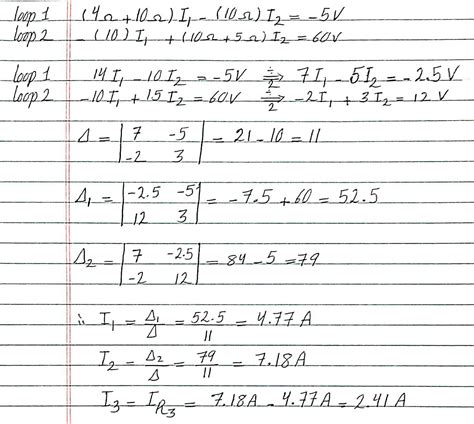 loop 1 (4Ω+10Ω) I₁ - (10Ω) I₂ = -5V
loop 2 -(10) I₁ + (10Ω+5Ω) I₂ = 60V
loop 1 14I₁ - 10I₂ = -5V ÷2⇒ 7I₁ - 5I₂ = -2.5V
loop 2 -10I₁ + 15I₂ = 60V ÷2⇒ -2I₁ + 3I₂ = 12V
Δ = | 7 -5 | = 21 - 10 = 11
-2 3
Δ₁ = | -2.5 -5 | = -7.5 + 60 = 52.5
12 3
Δ₂ = | 7 -2.5 | = 84 - 5 = 79
-2 12
∴ I₁ = Δ₁/Δ = 52.5/11 = 4.77A
I₂ = Δ₂/Δ = 79/11 = 7.18A
I₃ = I_R₃ = 7.18A - 4.77A = 2.41A